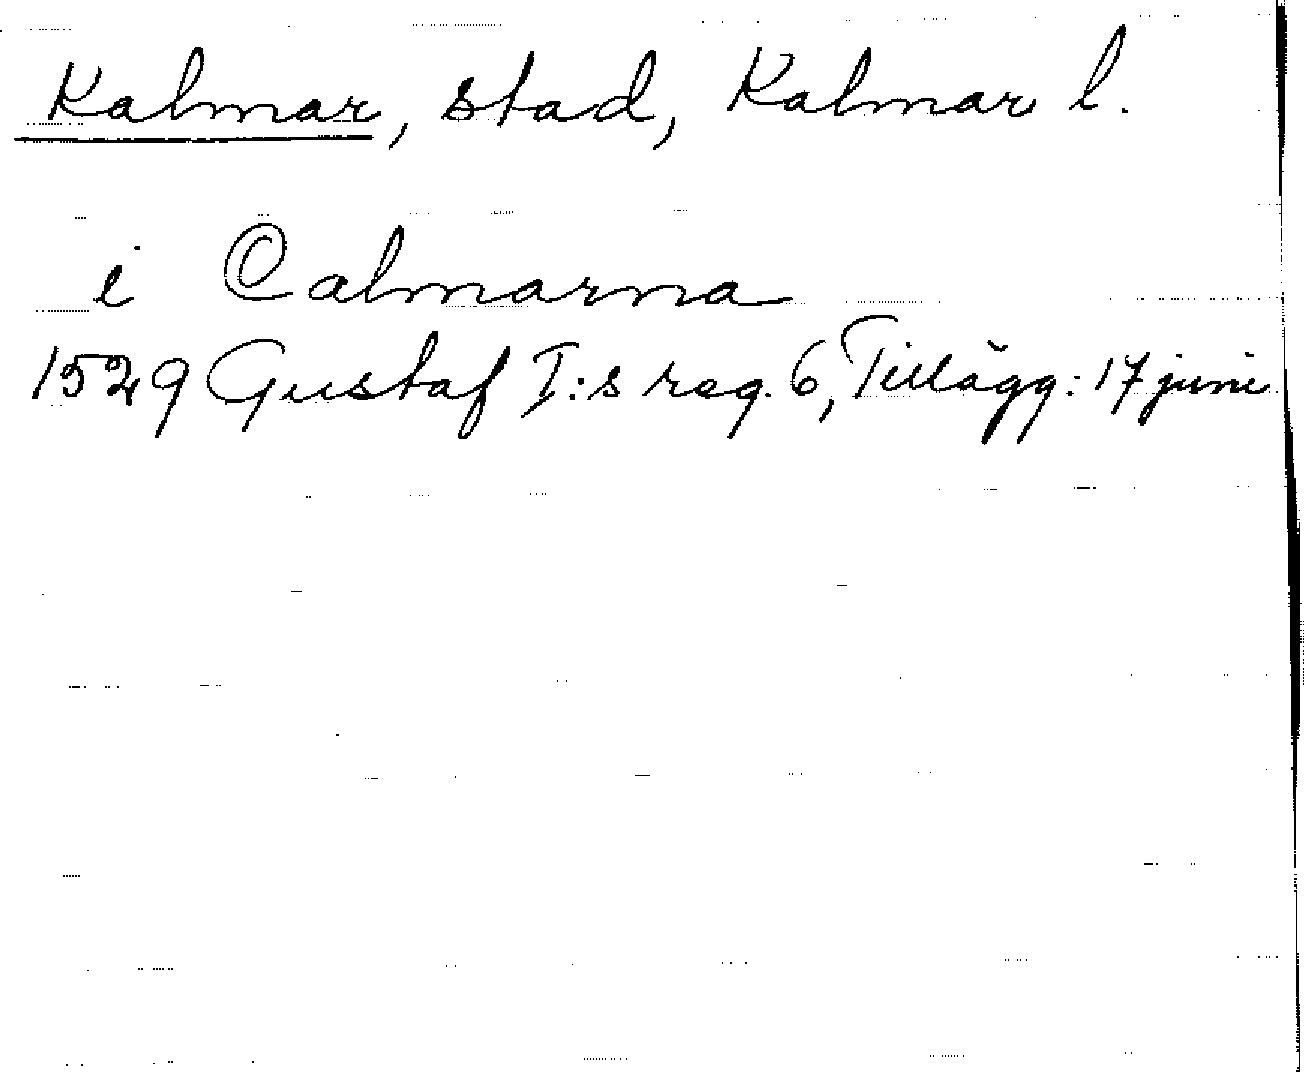 Kalmar, stad, Kalmar l.
i Calmarna
1529 Gustaf I:s reg. 6, Tillägg: 17 juni.